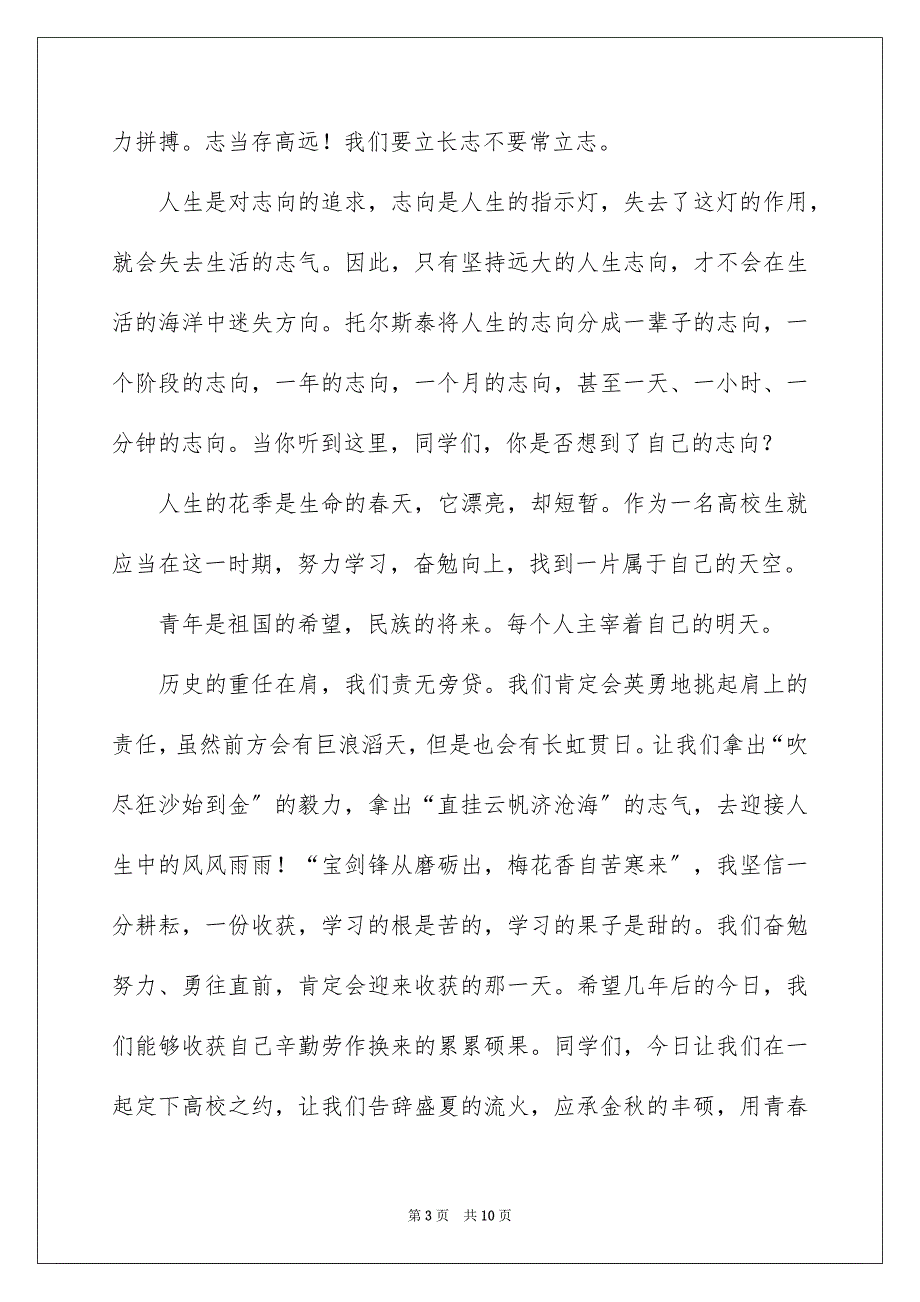 力拼搏。志当存高远！我们要立长志不要常立志。
人生是对志向的追求，志向是人生的指示灯，失去了这灯的作用，
就会失去生活的志气。因此，只有坚持远大的人生志向，才不会在生
活的海洋中迷失方向。托尔斯泰将人生的志向分成一辈子的志向，一
个阶段的志向，一年的志向，一个月的志向，甚至一天、一小时、一
分钟的志向。当你听到这里，同学们，你是否想到了自己的志向？
人生的花季是生命的春天，它漂亮，却短暂。作为一名高校生就
应当在这一时期，努力学习，奋勉向上，找到一片属于自己的天空。
青年是祖国的希望，民族的将来。每个人主宰着自己的明天。
历史的重任在肩，我们责无旁贷。我们肯定会英勇地挑起肩上的
责任，虽然前方会有巨浪滔天，但是也会有长虹贯日。让我们拿出“吹
尽狂沙始到金〞的毅力，拿出“直挂云帆济沧海〞的志气，去迎接人
生中的风风雨雨！“宝剑锋从磨砺出，梅花香自苦寒来〞，我坚信一
分耕耘，一份收获，学习的根是苦的，学习的果子是甜的。我们奋勉
努力、勇往直前，肯定会迎来收获的那一天。希望几年后的今日，我
们能够收获自己辛勤劳作换来的累累硕果。同学们，今日让我们在一
起定下高校之约，让我们告辞盛夏的流火，应承金秋的丰硕，用青春
第 3 页 共 10 页